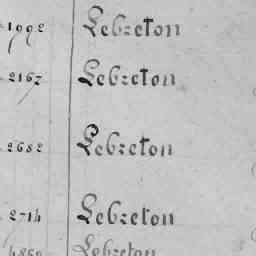 1992 Lebreton
2167 Lebreton
2682 Lebreton
2714 Lebreton
4860 Lebreton